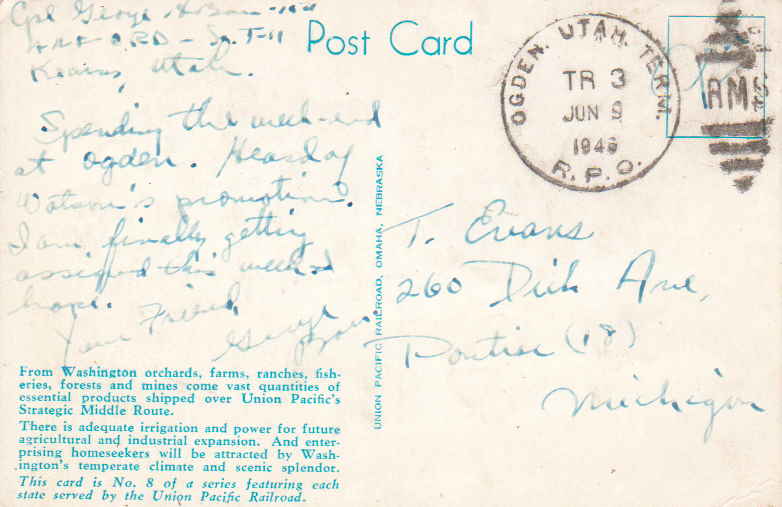 Cpl George
Kearns, Utah.
Post Card
OGDEN, UTAH. TERM.
TR 3
JUN 9
1943
R. P. O.
RMS
Spending the week-end
at Ogden. Heard of
Watson's promotion.
I am finally getting
assigned this week I
hope.
Your Friend
George
T. Evans
260 Dick Ave,
Pontiac (18)
Michigan
UNION PACIFIC RAILROAD, OMAHA, NEBRASKA
From Washington orchards, farms, ranches, fish-
eries, forests and mines come vast quantities of
essential products shipped over Union Pacific's
Strategic Middle Route.
There is adequate irrigation and power for future
agricultural and industrial expansion. And enter-
prising homeseekers will be attracted by Wash-
ington's temperate climate and scenic splendor.
This card is No. 8 of a series featuring each
state served by the Union Pacific Railroad.